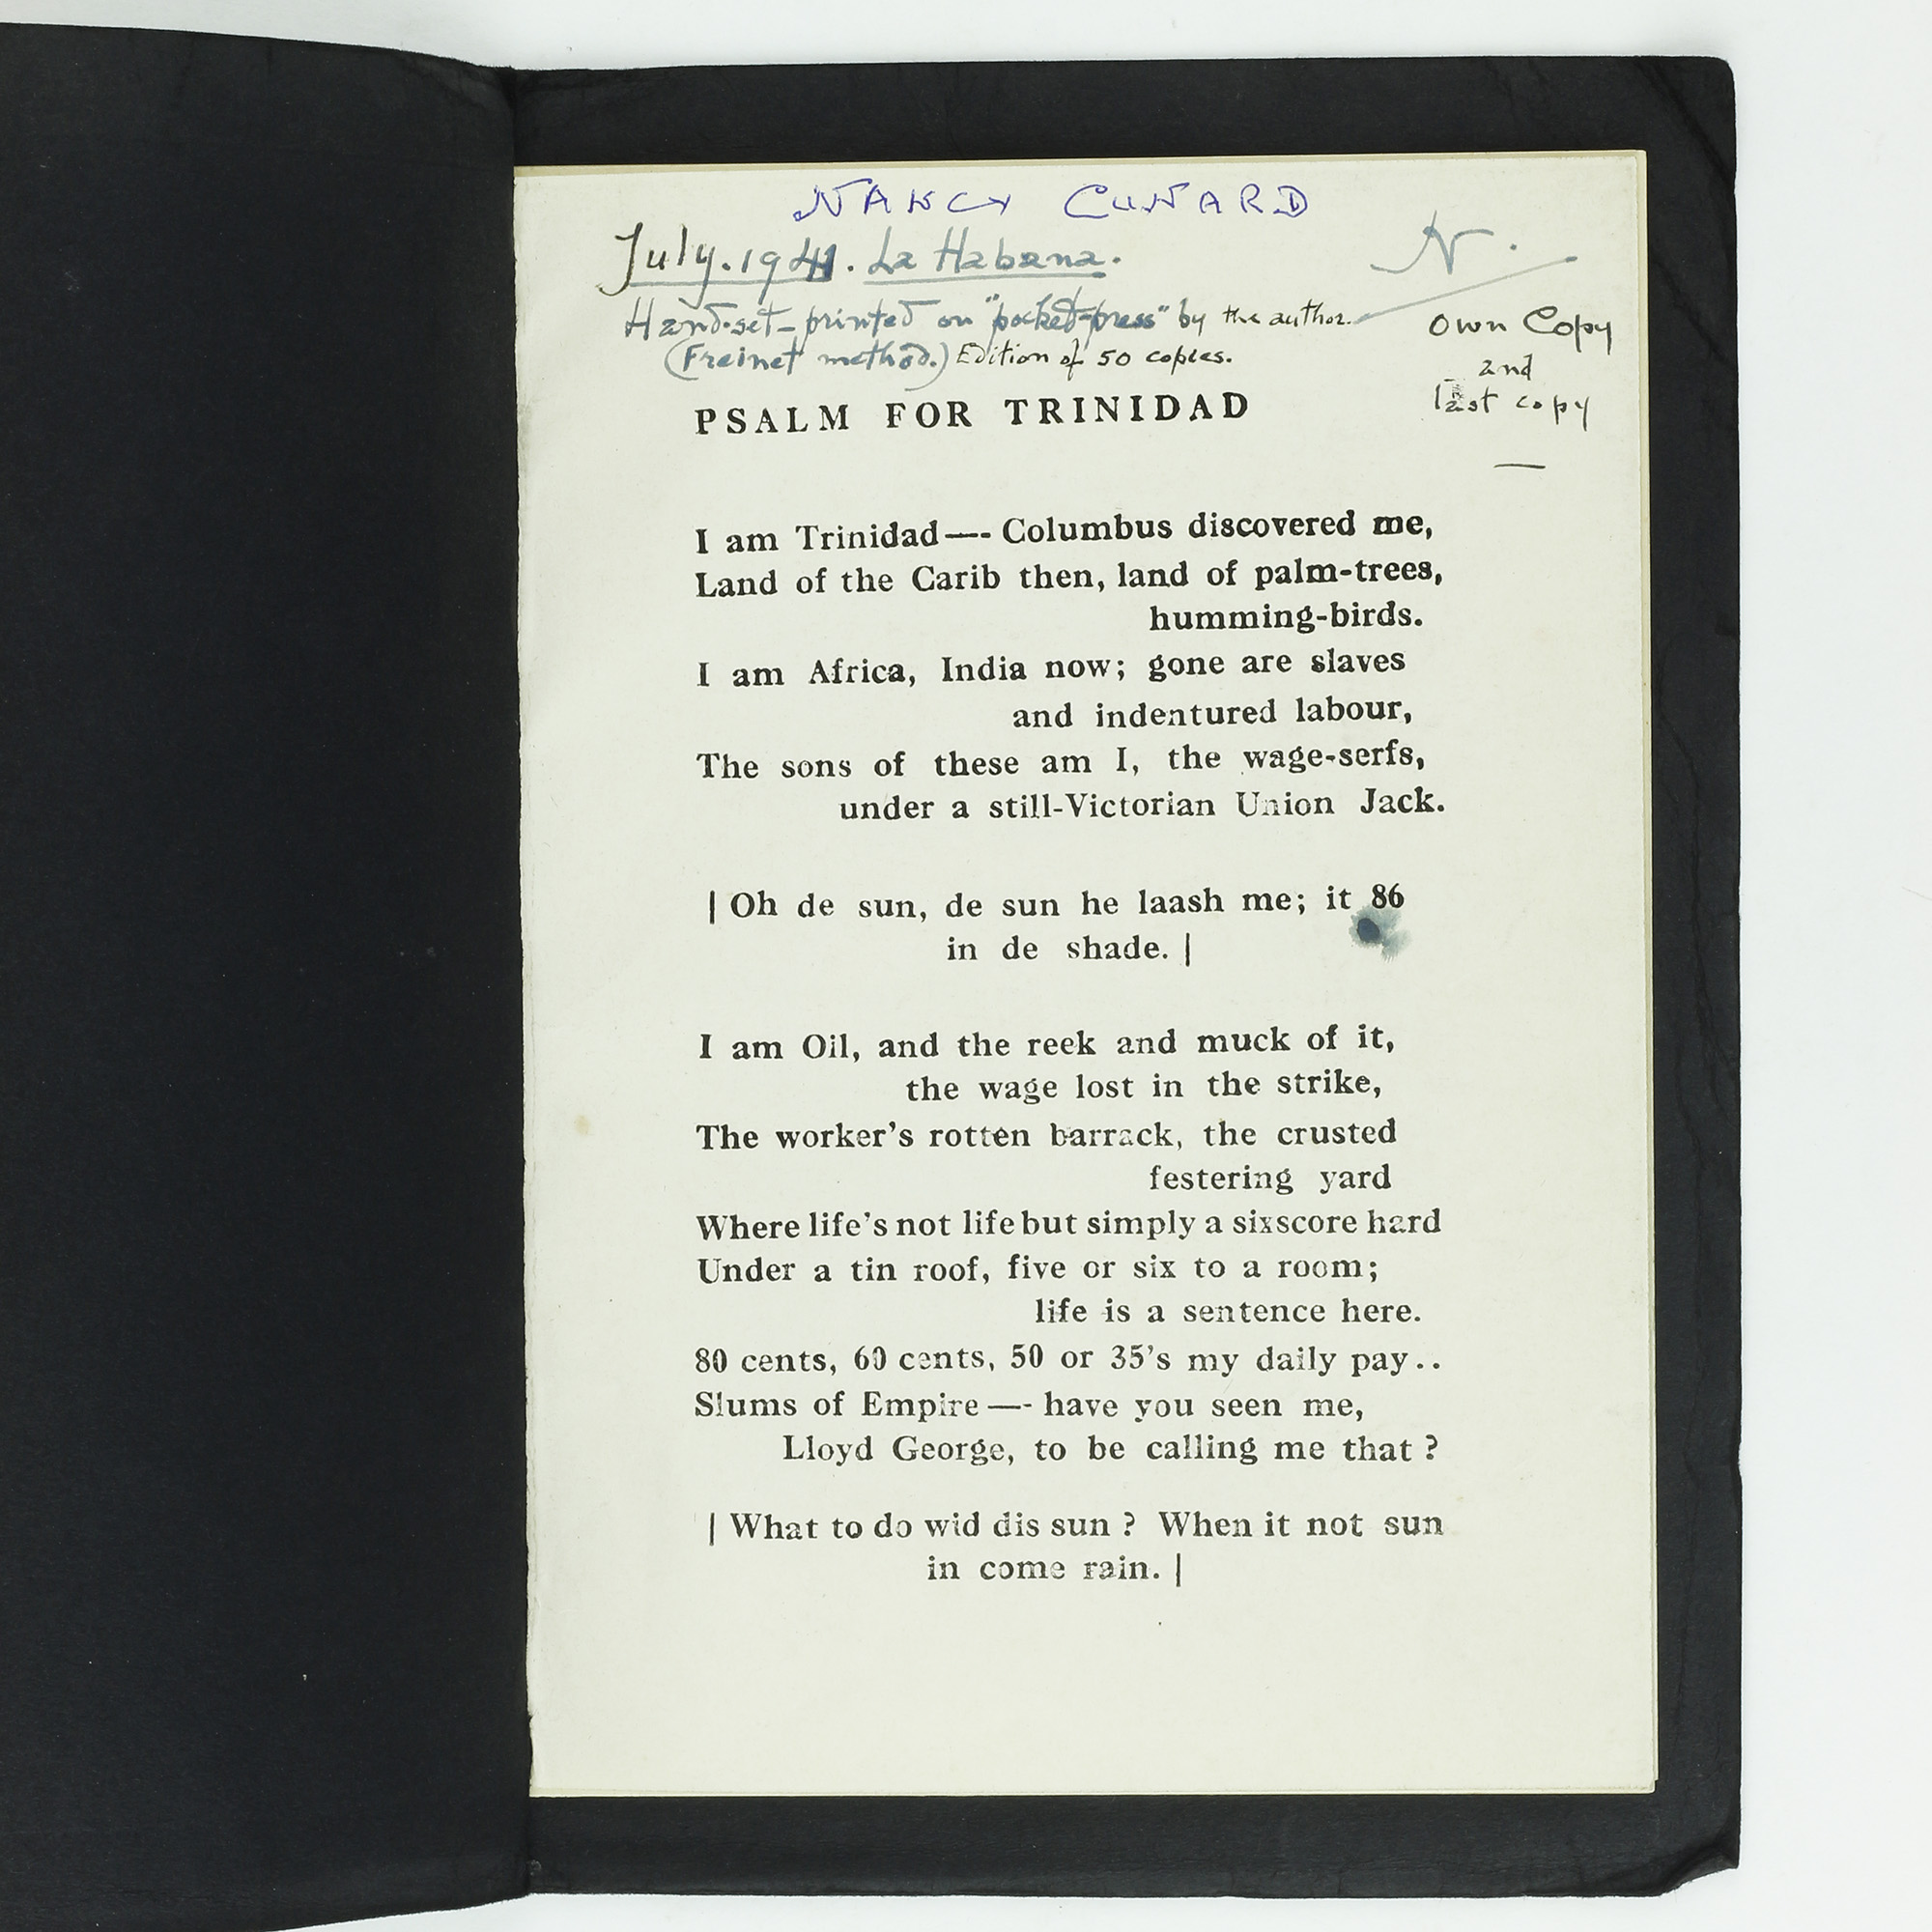 NANCY CUNARD
July. 1941. La Habana.
N.
Hand-set-printed on "pocket-press" by the author.
(Freinet method.) Edition of 50 copies.
own Copy
and
last copy
PSALM FOR TRINIDAD
I am Trinidad—- Columbus discovered me,
Land of the Carib then, land of palm-trees,
humming-birds.
I am Africa, India now; gone are slaves
and indentured labour,
The sons of these am I, the wage-serfs,
under a still-Victorian Union Jack.
| Oh de sun, de sun he laash me; it 86
in de shade. |
I am Oil, and the reek and muck of it,
the wage lost in the strike,
The worker's rotten barrack, the crusted
festering yard
Where life's not life but simply a sixscore hard
Under a tin roof, five or six to a room;
life is a sentence here.
80 cents, 60 cents, 50 or 35's my daily pay..
Slums of Empire —- have you seen me,
Lloyd George, to be calling me that ?
| What to do wid dis sun ? When it not sun
in come rain. |